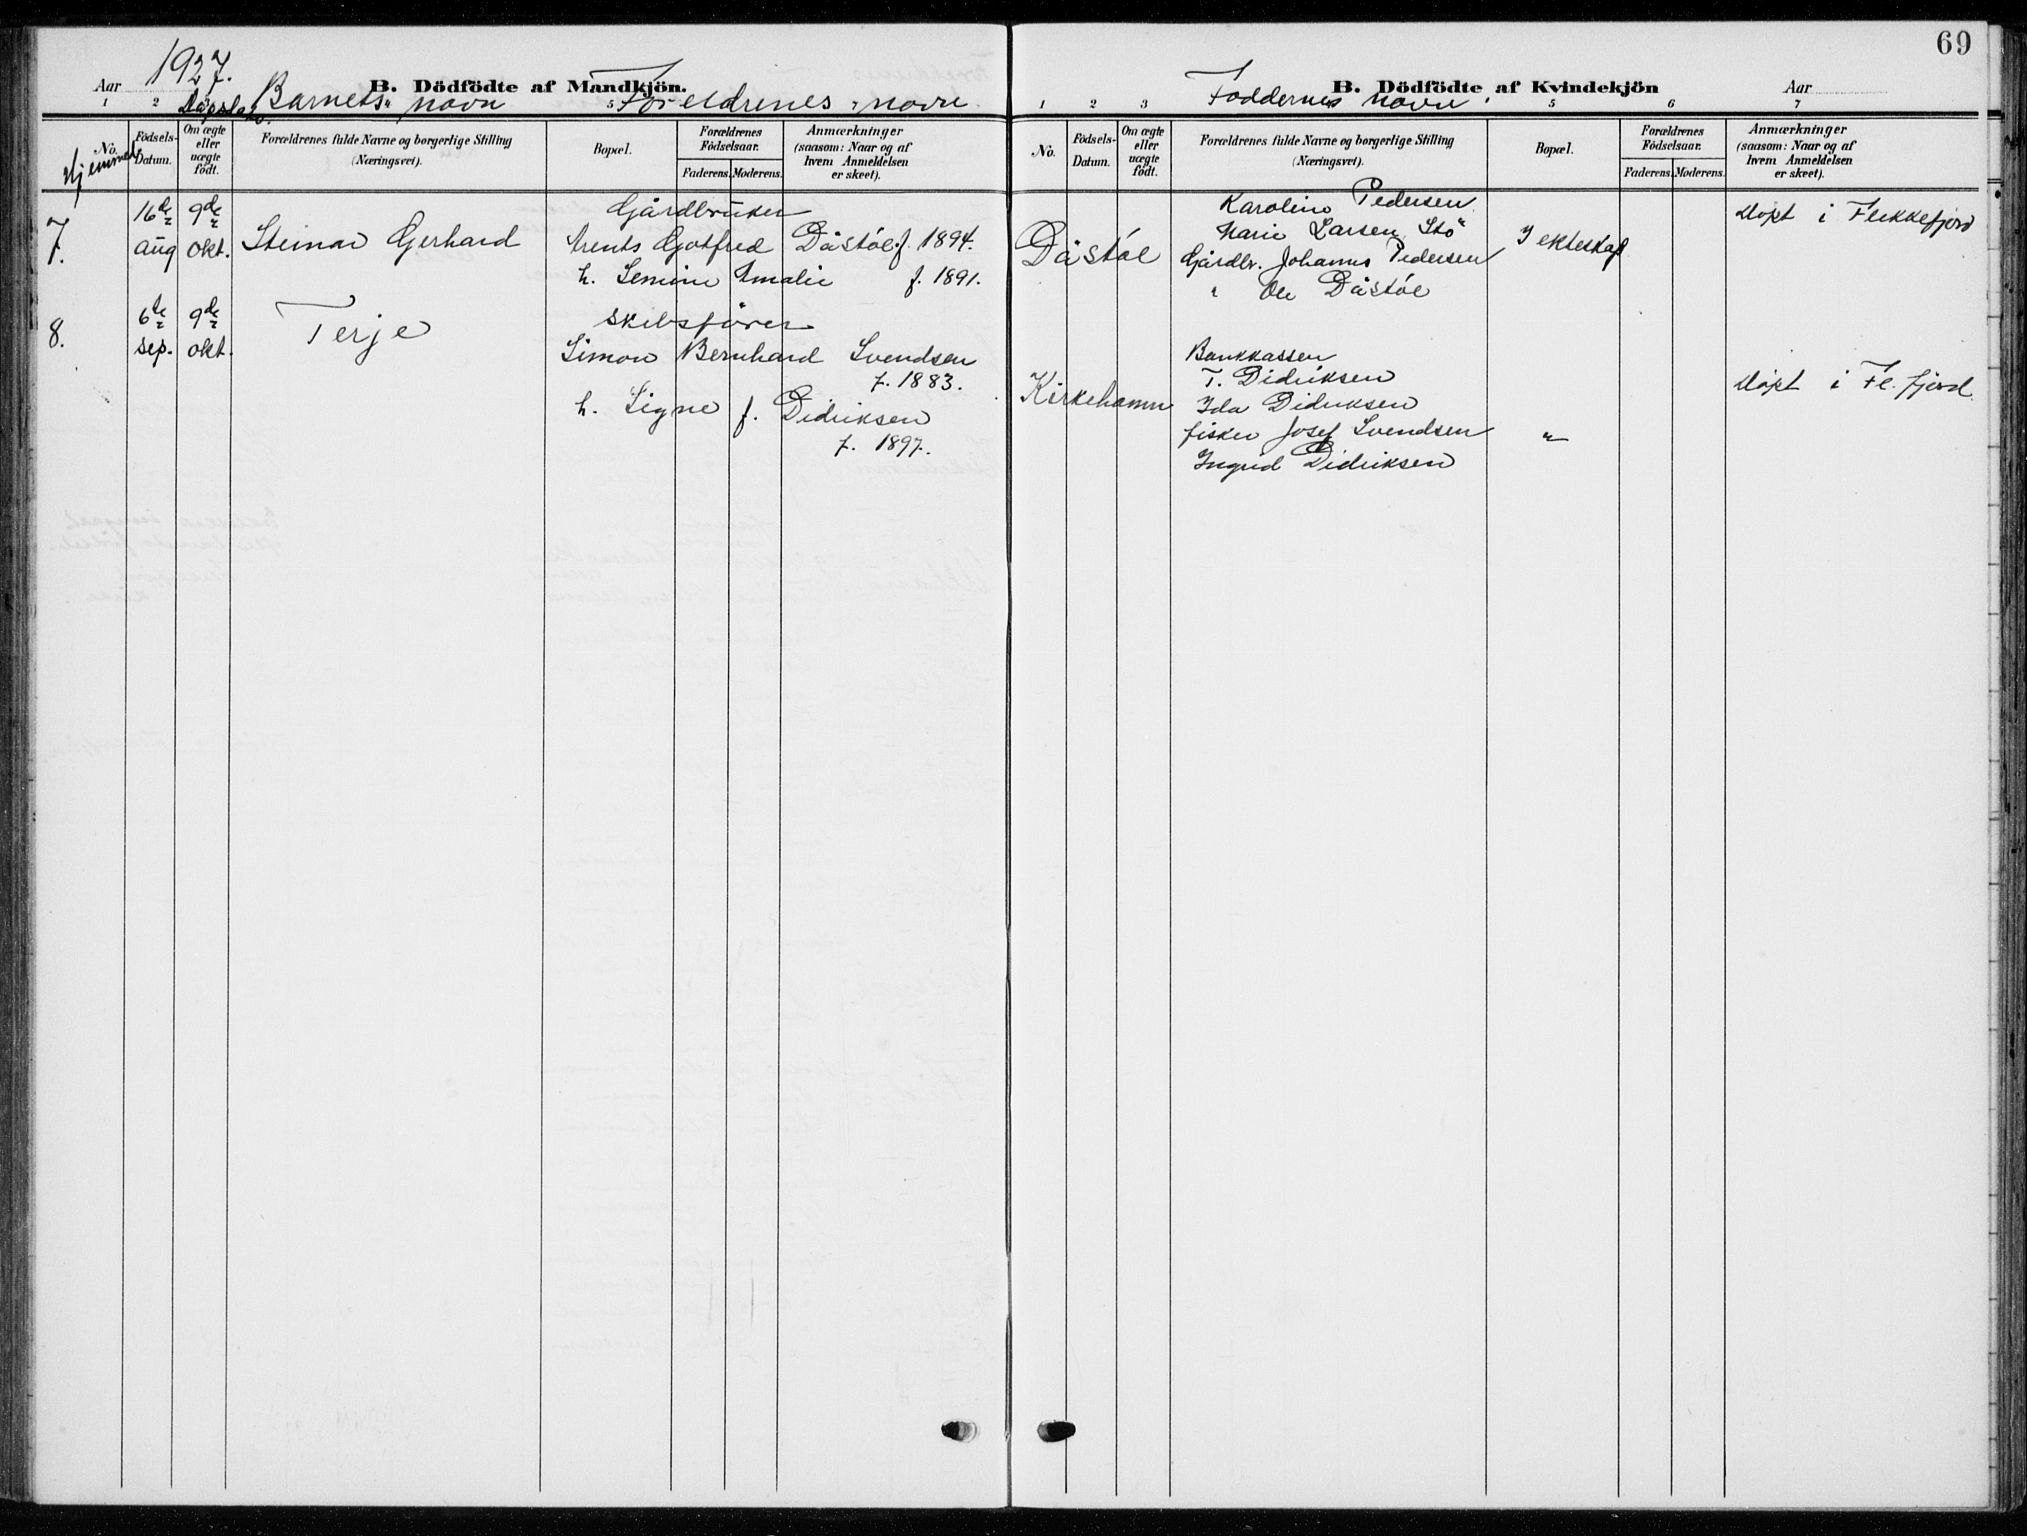 69
Aar 1927.
B. Dödfödte af Mandkjön.
Barnets navn
Foreldrenes navn.
1 2 3 5
No.
Hjemmed
Födsels-Datum.
Om ægte eller uægte födt.
Forældrenes fulde Navne og borgerlige Stilling (Næringsvei).
Bopæl.
Forældrenes Födselsaar.
Faderens. Moderens.
Anmærkninger (saasom: Naar og af hvem Anmeldelsen er skeet).
7.
16de aug
9de okt.
Steinar Gerhard
Gårdbruker
Arents Gotfred Dåstöl f. 1894.
h. Semine Amalie f. 1891.
8.
6te sep.
9de okt.
Terje
Skibsförer
Simon Bernhard Svendsen
f. 1883.
h. Signe f. Didriksen
f. 1897.
B. Dödfödte af Kvindekjön
Aar
Faddernes navn.
1 2 3 5 6 7
No.
Födsels-Datum.
Om ægte eller uægte födt.
Forældrenes fulde Navne og borgerlige Stilling (Næringsvei).
Bopæl.
Forældrenes Födselsaar.
Faderens. Moderens.
Anmærkninger (saasom: Naar og af hvem Anmeldelsen er skeet).
Dåstöl
Karoline Pedersen
Marie Larsen Stö
Gårdbr. Johannes Pedersen
" Ole Dåstöl
I ekteskap
Döpt i Flekkefjord
Kirkehamn
Bankkasser
T. Didriksen
Ida Didriksen
fisker Josef Svendsen
Ingrid Didriksen
"
Döpt i Fl. fjord.